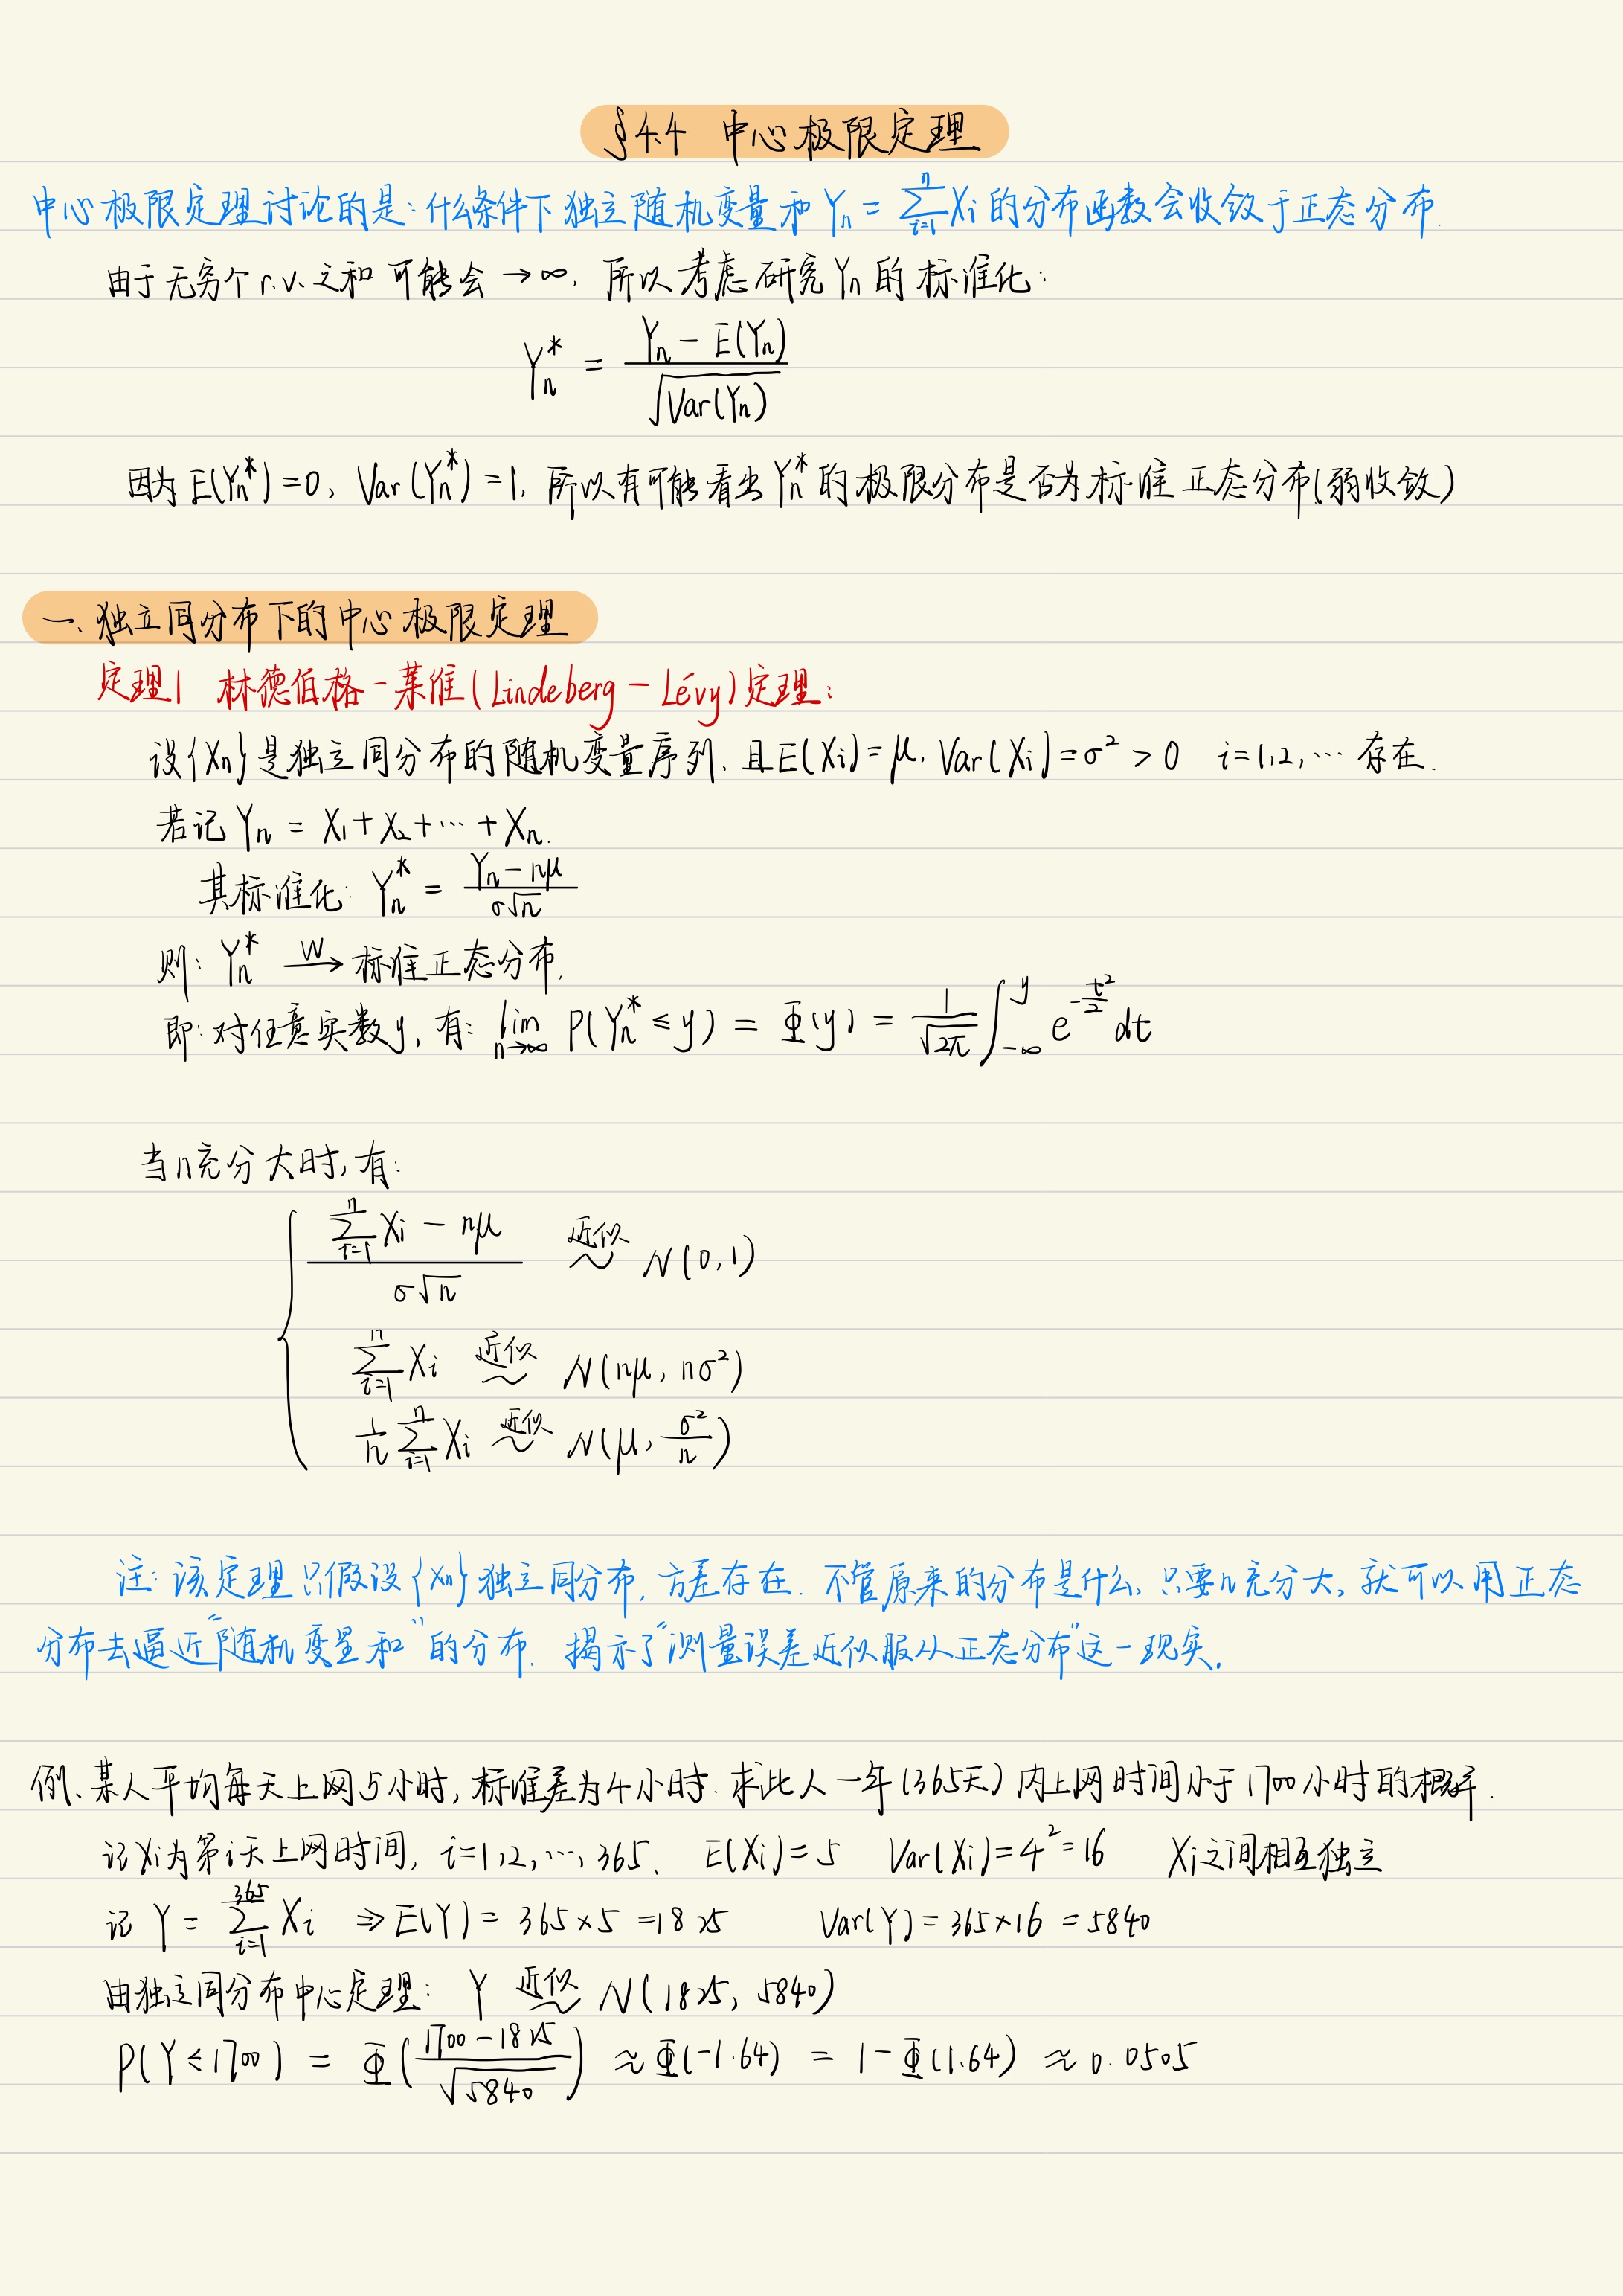 §4.4 中心极限定理
中心极限定理讨论的是：什么条件下独立随机变量和 Yₙ = ∑ⁿᵢ₌₁ Xᵢ 的分布函数会收敛于正态分布.
由于无穷个 r.v. 之和可能会 →∞, 所以考虑研究 Yₙ 的标准化：
Yₙ* = (Yₙ − E(Yₙ)) / √Var(Yₙ)
因为 E(Yₙ*)=0, Var(Yₙ*)=1, 所以有可能看出 Yₙ* 的极限分布是否为标准正态分布(弱收敛)
一、独立同分布下的中心极限定理
定理1 林德伯格-莱维(Lindeberg-Lévy)定理：
设{Xₙ}是独立同分布的随机变量序列, 且E(Xᵢ)=μ, Var(Xᵢ)=σ² > 0 i=1,2,⋯ 存在.
若记 Yₙ = X₁+X₂+⋯+Xₙ.
其标准化: Yₙ* = (Yₙ − nμ) / (σ√n)
则: Yₙ* —W→ 标准正态分布.
即: 对任意实数y, 有: lim n→∞ P(Yₙ* ≤ y) = Φ(y) = 1/√2π ∫_{-∞}^{y} e^{-t²/2} dt
当n充分大时, 有:
(∑ⁿᵢ₌₁ Xᵢ − nμ) / (σ√n) 近似~ N(0,1)
∑ⁿᵢ₌₁ Xᵢ 近似~ N(nμ, nσ²)
1/n ∑ⁿᵢ₌₁ Xᵢ 近似~ N(μ, σ²/n)
注: 该定理只假设{Xₙ}独立同分布, 方差存在. 不管原来的分布是什么, 只要n充分大, 就可以用正态
分布去逼近“随机变量和”的分布. 揭示了“测量误差近似服从正态分布”这一现实.
例、某人平均每天上网5小时, 标准差为4小时. 求此人一年(365天)内上网时间小于1700小时的概率.
记Xᵢ为第i天上网时间, i=1,2,⋯,365. E(Xᵢ)=5 Var(Xᵢ)=4²=16 Xᵢ之间相互独立
记 Y = ∑³⁶⁵ᵢ₌₁ Xᵢ ⇒ E(Y) = 365×5 =1825 Var(Y)=365×16 =5840
由独立同分布中心定理: Y 近似~ N(1825, 5840)
P(Y≤1700) = Φ((1700−1825)/√5840) ≈ Φ(−1.64) = 1−Φ(1.64) ≈ 0.0505